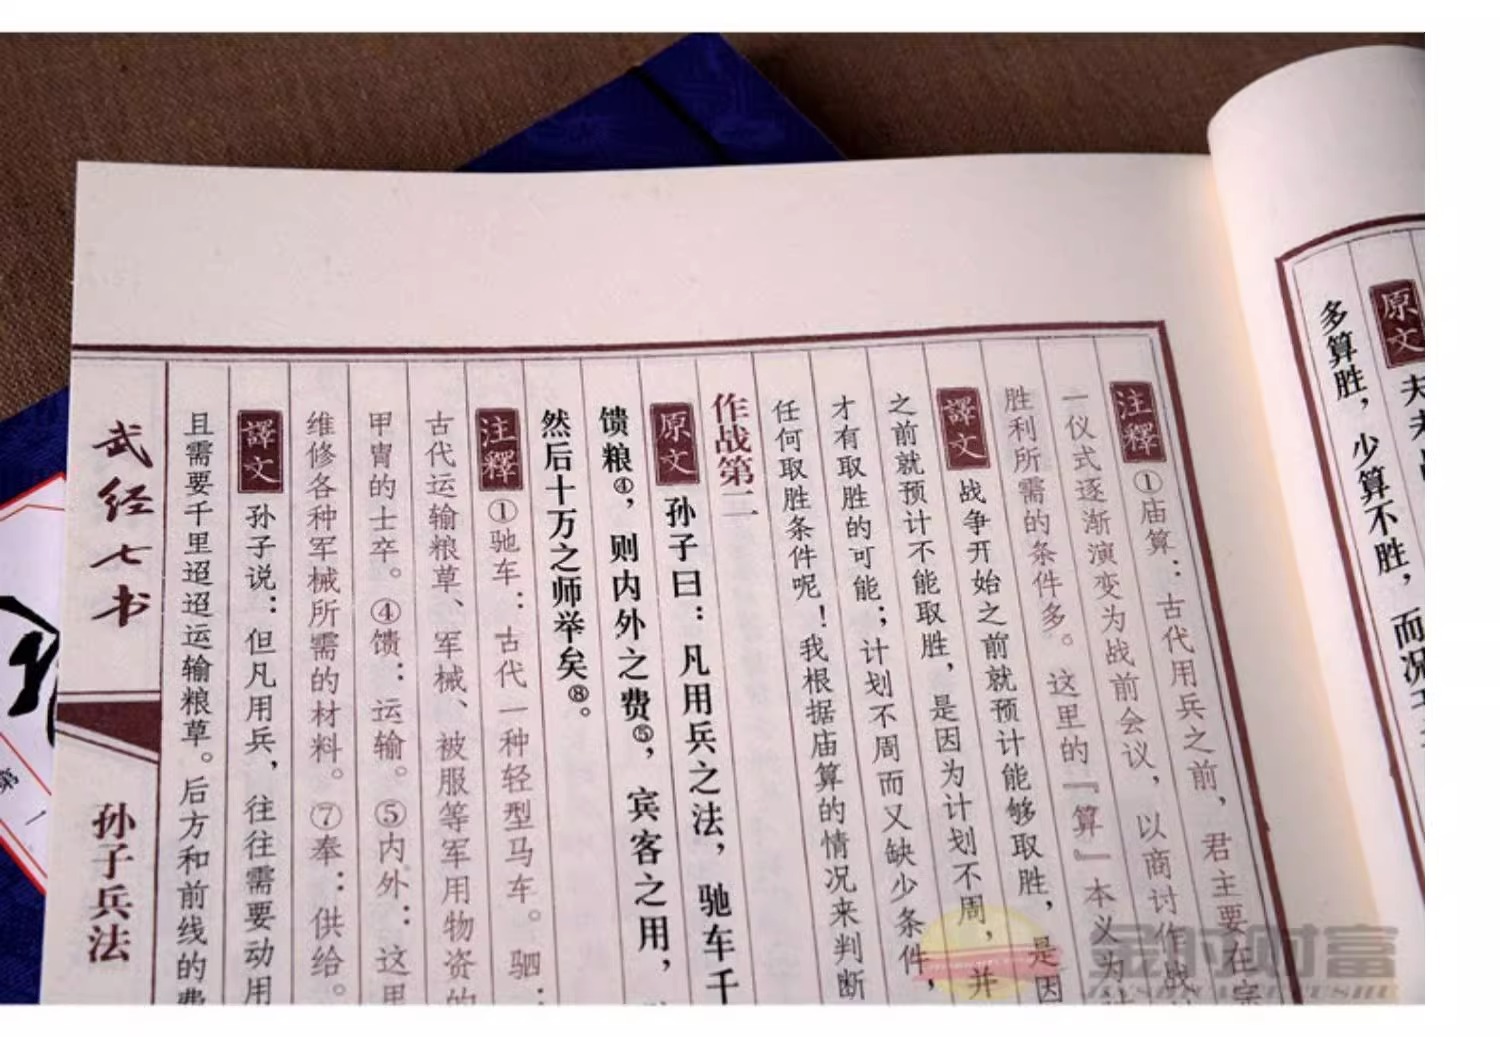 原文
夫未
多算胜，少算不胜，而况
注釋 ①庙算：古代用兵之前，君主要在
一仪式逐渐演变为战前会议，以商讨作战
胜利所需的条件多。这里的『算』本义为
譯文 战争开始之前就预计能够取胜，是因
之前就预计不能取胜，是因为计划不周，并
才有取胜的可能；计划不周而又缺少条件，
任何取胜条件呢！我根据庙算的情况来判断
作战第二
原文 孙子曰：凡用兵之法，驰车千
馈粮④，则内外之费⑤，宾客之用，
然后十万之师举矣⑧。
注釋 ①驰车：古代一种轻型马车。驷：
古代运输粮草、军械、被服等军用物资的
甲胄的士卒。④馈：运输。⑤内外：这里
维修各种军械所需的材料。⑦奉：供给。
譯文 孙子说：但凡用兵，往往需要动用
且需要千里迢迢运输粮草。后方和前线的费
武经七书
孙子兵法
第
金时财富